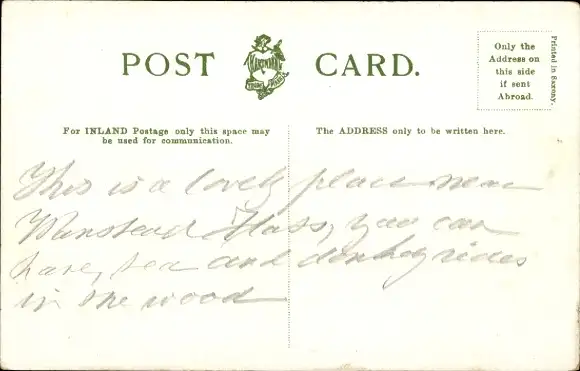 POST CARD.
HARTMANN
TRADE MARK
Only the
Address on
this side
if sent
Abroad.
Printed in Saxony.
For INLAND Postage only this space may
be used for communication.
The ADDRESS only to be written here.
This is a lovely place near
Wanstead Flats, you can
have, tea and donkey rides
in the wood